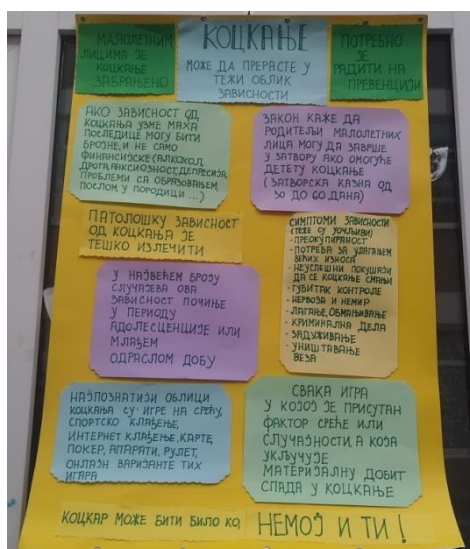 МАЛОЛЕТНИМ
ЛИЦИМА ЈЕ
КОЦКАЊЕ
ЗАБРАЊЕНО
КОЦКАЊЕ
МОЖЕ ДА ПРЕРАСТЕ У
ТЕЖИ ОБЛИК
ЗАВИСНОСТИ
ПОТРЕБНО
ЈЕ
РАДИТИ НА
ПРЕВЕНЦИЈИ
АКО ЗАВИСНОСТ ОД
КОЦКАЊА УЗМЕ МАХА
ПОСЛЕДИЦЕ МОГУ БИТИ
БРОЈНЕ, И НЕ САМО
ФИНАНСИЈСКЕ (АЛКОХОЛ,
ДРОГА, АНКСИОЗНОСТ, ДЕПРЕСИЈА,
ПРОБЛЕМИ СА ОБРАЗОВАЊЕМ,
ПОСЛОМ, У ПОРОДИЦИ ...)
ЗАКОН КАЖЕ ДА
РОДИТЕЉИ МАЛОЛЕТНИХ
ЛИЦА МОГУ ДА ЗАВРШЕ
У ЗАТВОРУ АКО ОМОГУЋЕ
ДЕТЕТУ КОЦКАЊЕ
(ЗАТВОРСКА КАЗНА ОД
30 ДО 60 ДАНА)
ПАТОЛОШКУ ЗАВИСНОСТ
ОД КОЦКАЊА ЈЕ
ТЕШКО ИЗЛЕЧИТИ
СИМПТОМИ ЗАВИСНОСТИ
(ТЕЖЕ СУ УОЧЉИВИ)
- ПРЕОКУПИРАНОСТ
- ПОТРЕБА ЗА УЛАГАЊЕМ
ВЕЋИХ ИЗНОСА
- НЕУСПЕШНИ ПОКУШАЈИ
ДА СЕ КОЦКАЊЕ СМАЊИ
- ГУБИТАК КОНТРОЛЕ
- НЕРВОЗА И НЕМИР
- ЛАГАЊЕ, ОБМАЊИВАЊЕ
- КРИМИНАЛНА ДЕЛА
- ЗАДУЖИВАЊЕ
- УНИШТАВАЊЕ
ВЕЗА
У НАЈВЕЋЕМ БРОЈУ
СЛУЧАЈЕВА ОВА
ЗАВИСНОСТ ПОЧИЊЕ
У ПЕРИОДУ
АДОЛЕСЦЕНЦИЈЕ ИЛИ
МЛАЂЕМ
ОДРАСЛОМ ДОБУ
НАЈПОЗНАТИЈИ ОБЛИЦИ
КОЦКАЊА СУ: ИГРЕ НА СРЕЋУ,
СПОРТСКО КЛАЂЕЊЕ,
ИНТЕРНЕТ КЛАЂЕЊЕ, КАРТЕ,
ПОКЕР, АПАРАТИ, РУЛЕТ,
ОНЛАЈН ВАРИЈАНТЕ ТИХ
ИГАРА
СВАКА ИГРА
У КОЈОЈ ЈЕ ПРИСУТАН
ФАКТОР СРЕЋЕ ИЛИ
СЛУЧАЈНОСТИ, А КОЈА
УКЉУЧУЈЕ
МАТЕРИЈАЛНУ ДОБИТ
СПАДА У КОЦКАЊЕ
КОЦКАР МОЖЕ БИТИ БИЛО КО,
НЕМОЈ И ТИ !